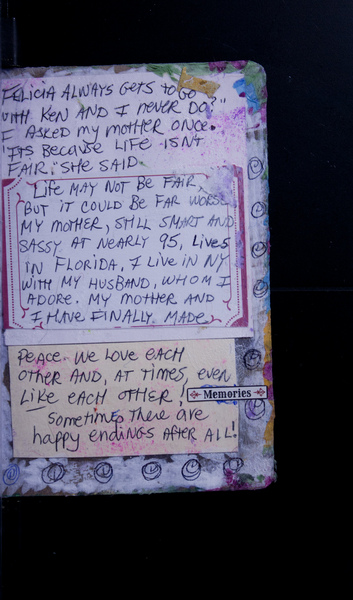 FELICIA ALWAYS GETS to GO
WITH KEN AND I NEVER DO?"
I ASKED MY MOTHER ONCE.
"ITS BECAUSE LIFE ISN'T
FAIR," SHE SAID.
Life MAY NOT BE FAIR,
BUT IT COULD BE FAR WORSE
MY MOTHER, STILL SMART AND
SASSY AT NEARLY 95, Lives
IN FLORIDA, I LIVE IN NY
WITH MY HUSBAND, WHOM I
ADORE. MY MOTHER AND
I HAVE FINALLY MADE
PEACE. WE LOVE EACH
OTHER AND, AT TIMES, EVEN
LIKE EACH OTHER!
Memories
Sometimes There are
happy endings AFTER ALL!